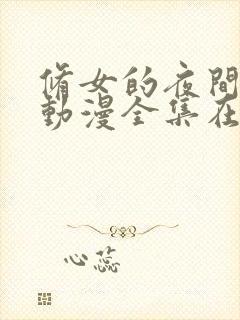 脩女的夜間
動漫全集在
心蕊